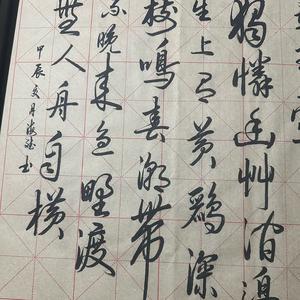 獨憐幽艸澗邊
生上有黄鸝深
樹鳴春潮帶
雨晚来急野渡
無人舟自横
甲辰冬月
书